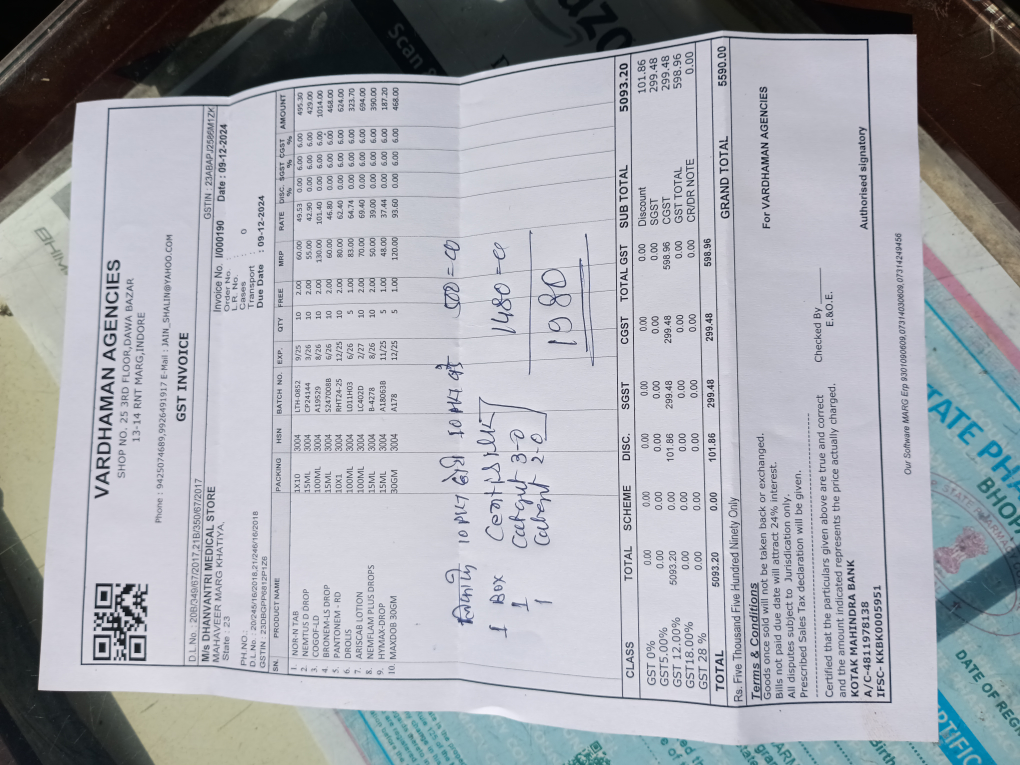 VARDHAMAN AGENCIES
SHOP NO. 25 3RD FLOOR,DAWA BAZAR
13-14 RNT MARG,INDORE
Phone : 9425074689,9926491917 E-Mail : JAIN_SHALIN@YAHOO.COM
GST INVOICE
D.L.No. 20B/349/67/2017,21B/350/67/2017 GSTIN : 23ABAPJ2586M1ZK
M/s DHANVANTRI MEDICAL STORE Invoice No. I/000190 Date : 09-12-2024
MAHAVEER MARG KHATIYA, Order No. :
State : 23 L.R. No. :
Cases : 0
PH.NO. : Transport :
D.L.No. : 20/245/16/2018,21/246/16/2018 Due Date : 09-12-2024
GSTIN : 23DEGPP6812P1Z6
SN. PRODUCT NAME PACKING HSN BATCH NO. EXP. QTY FREE MRP RATE DISC. % SGST % CGST % AMOUNT
1. NOR-N TAB 1X10 3004 LTH-0852 9/25 10 2.00 60.00 49.53 0.00 6.00 6.00 495.30
2. NEMTUS DROP 15ML 3004 CP24144 3/26 10 2.00 55.00 42.90 0.00 6.00 6.00 429.00
3. COGOF-LD 100ML 3004 A19529 8/26 10 2.00 130.00 101.40 0.00 6.00 6.00 1014.00
4. BRONEM-LS DROP 15ML 3004 S247008B 6/26 10 2.00 60.00 46.80 0.00 6.00 6.00 468.00
5. PANTONEM - RD 10X1 3004 RHT24-25 12/25 10 2.00 80.00 62.40 0.00 6.00 6.00 624.00
6. DROLIS 100ML 3004 L011H03 6/26 5 1.00 83.00 64.74 0.00 6.00 6.00 323.70
7. ARISCAB LOTION 100ML 3004 LC402D 2/27 10 2.00 70.00 69.40 0.00 6.00 6.00 694.00
8. NEMFLAM PLUS DROPS 15ML 3004 B-4278 8/26 10 2.00 50.00 39.00 0.00 6.00 6.00 390.00
9. HYMAX-DROP 15ML 3004 A180638 11/25 5 1.00 48.00 37.44 0.00 6.00 6.00 187.20
10. MAXDOB 30GM 30GM 3004 A178 12/25 5 1.00 120.00 93.60 0.00 6.00 6.00 468.00
10 PKT 10 PKT 500=00
1 BOX 1480=00
1 3-0
1 2-0 1980
CLASS TOTAL SCHEME DISC. SGST CGST TOTAL GST SUB TOTAL 5093.20
GST 0% 0.00 0.00 0.00 0.00 0.00 0.00 Discount 101.86
GST5.00% 0.00 0.00 0.00 0.00 0.00 0.00 SGST 299.48
GST 12.00% 5093.20 0.00 101.86 299.48 299.48 598.96 CGST 299.48
GST18.00% 0.00 0.00 0.00 0.00 0.00 0.00 GST TOTAL 598.96
GST 28 % 0.00 0.00 0.00 0.00 0.00 0.00 CR/DR NOTE 0.00
TOTAL 5093.20 0.00 101.86 299.48 299.48 598.96 GRAND TOTAL 5590.00
Rs: Five Thousand Five Hundred Ninety Only
Terms & Conditions For VARDHAMAN AGENCIES
Goods once sold will not be taken back or exchanged.
Bills not paid due date will attract 24% interest.
All disputes subject to Jurisdication only.
Prescribed Sales Tax declaration will be given.
Certified that the particulars given above are true and correct Checked By
and the amount indicated represents the price actually charged. E.&O.E.
KOTAK MAHINDRA BANK
A/C-4811978138
IFSC- KKBK0005951 Authorised signatory
Our Software MARG Erp 9301090609,07314030609,07314249456
Scan
STATE PHA
BHOP
DATE OF REG
Birth